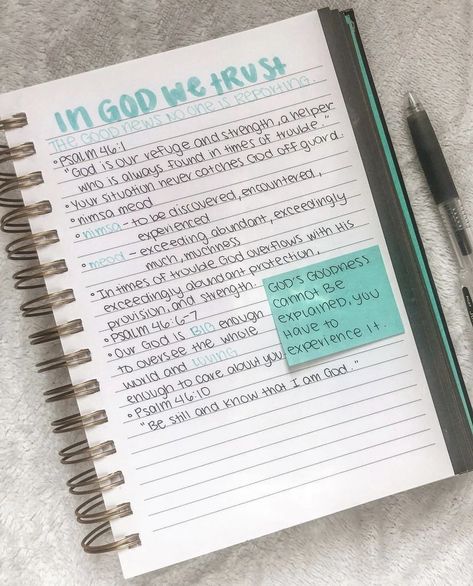 IN GOD WE TRUST
THE GOOD NEWS NO ONE IS REPORTING.
• Psalm 46:1
"God is our refuge and strength, a helper
who is always found in times of trouble."
• Your situation never catches God off guard.
• nimsa meod
• nimsa - to be discovered, encountered,
experienced
• meod - exceeding abundant, exceedingly
much, muchness
• In times of trouble God overflows with His
exceedingly abundant protection,
provision, and strength.
• Psalm 46:6-7
• Our God is BIG enough
to oversee the whole
world and loving
enough to care about you
• Psalm 46:10
"Be still and know that I am God."
GOD'S GOODNESS
CANNOT BE
EXPLAINED, YOU
HAVE TO
EXPERIENCE IT.